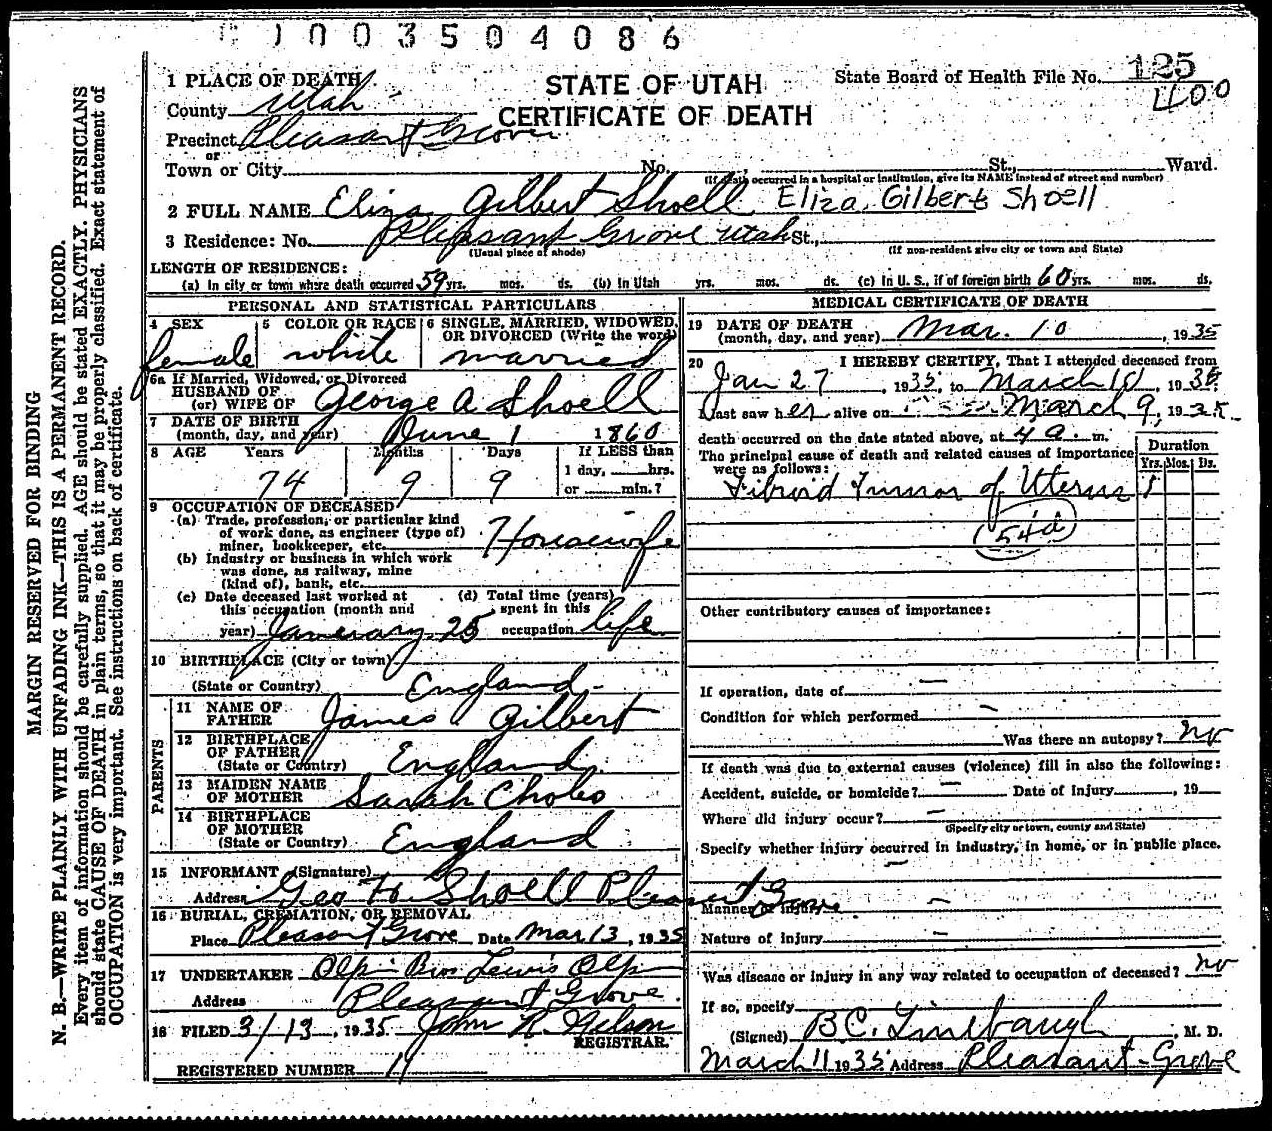 1003504086
1 PLACE OF DEATH
STATE OF UTAH
CERTIFICATE OF DEATH
State Board of Health File No. 125
400
County Utah
Precinct Pleasant Grove
or
Town or City No. St., Ward.
(If death occurred in a hospital or institution, give its NAME instead of street and number)
2 FULL NAME Eliza Gilbert Shoell Eliza Gilbert Shoell
3 Residence: No. Pleasant Grove Utah St.,
(Usual place of abode) (If non-resident give city or town and State)
LENGTH OF RESIDENCE:
(a) In city or town where death occurred 59 yrs. mos. ds. (b) In Utah yrs. mos. ds. (c) In U. S., if of foreign birth 60 yrs. mos. ds.
PERSONAL AND STATISTICAL PARTICULARS
4 SEX
female
5 COLOR OR RACE
white
6 SINGLE, MARRIED, WIDOWED,
OR DIVORCED (Write the word)
married
6a If Married, Widowed, or Divorced
HUSBAND OF
(or) WIFE OF George A Shoell
7 DATE OF BIRTH
(month, day, and year) June 1 1860
8 AGE Years Months Days If LESS than
1 day, hrs.
74 9 9 or min.?
9 OCCUPATION OF DECEASED
(a) Trade, profession, or particular kind
of work done, as engineer (type of)
miner, bookkeeper, etc. Housewife
(b) Industry or business in which work
was done, as railway, mine
(kind of), bank, etc.
(c) Date deceased last worked at
this occupation (month and
year) January 25
(d) Total time (years)
spent in this
occupation life
10 BIRTHPLACE (City or town)
(State or Country) England
PARENTS
11 NAME OF
FATHER James Gilbert
12 BIRTHPLACE
OF FATHER
(State or Country) England
13 MAIDEN NAME
OF MOTHER Sarah
14 BIRTHPLACE
OF MOTHER
(State or Country) England
15 INFORMANT (Signature)
Address Geo H Shoell Pleasant Grove
16 BURIAL, CREMATION, OR REMOVAL
Place Pleasant Grove Date Mar 13, 1935
17 UNDERTAKER Olpin Bros Lewis Olpin
Address Pleasant Grove.
18 FILED 3/13, 1935 John R. Gilson
REGISTRAR.
REGISTERED NUMBER 11
MEDICAL CERTIFICATE OF DEATH
19 DATE OF DEATH
(month, day, and year) Mar. 10, 1935
20 I HEREBY CERTIFY, That I attended deceased from
Jan 27 1935, to March 10, 1935.
I last saw her alive on March 9, 1935
death occurred on the date stated above, at 4 a. m.
The principal cause of death and related causes of importance
were as follows:
Duration
Yrs. Mos. Ds.
Fibroid Tumor of Uterus
54a
Other contributory causes of importance:
If operation, date of —
Condition for which performed —
Was there an autopsy? no
If death was due to external causes (violence) fill in also the following:
Accident, suicide, or homicide? — Date of injury, 19
Where did injury occur? —
(Specify city or town, county and State)
Specify whether injury occurred in industry, in home, or in public place.
—
Manner of injury —
Nature of injury —
Was disease or injury in any way related to occupation of deceased? no
If so, specify
(Signed) B.C. Linebaugh, M. D.
March 11 1935 Address Pleasant Grove
MARGIN RESERVED FOR BINDING
N. B.—WRITE PLAINLY WITH UNFADING INK—THIS IS A PERMANENT RECORD.
Every item of information should be carefully supplied. AGE should be stated EXACTLY. PHYSICIANS
should state CAUSE OF DEATH in plain terms, so that it may be properly classified. Exact statement of
OCCUPATION is very important. See instructions on back of certificate.